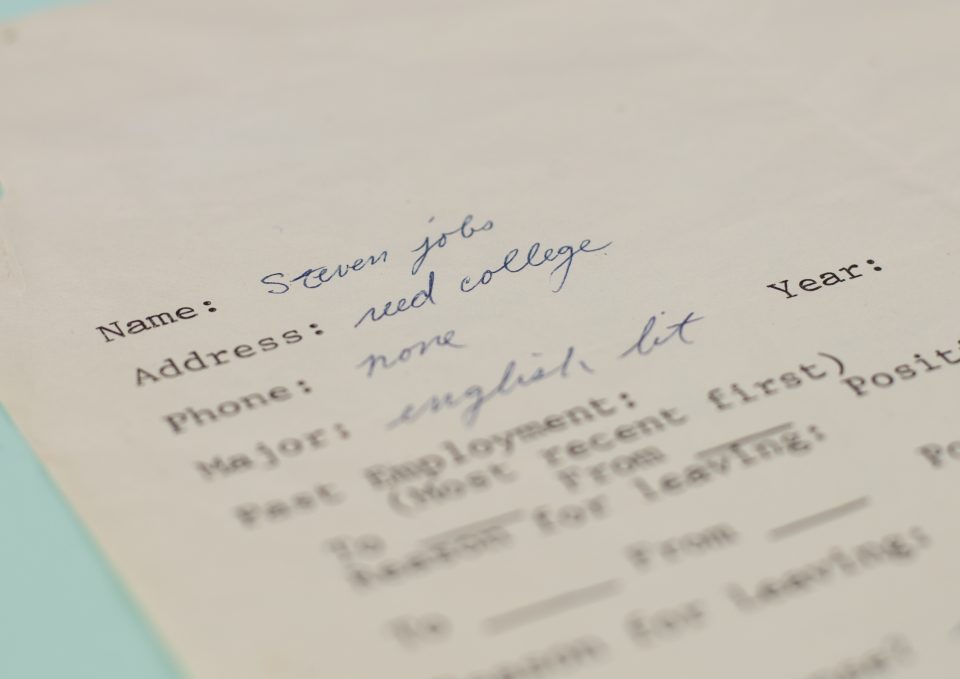 Name: Steven jobs
Address: reed college
Phone: none
Major: english lit Year:
Past Employment:
(Most recent first) Positi
To From
Reason for leaving:
To From Po
Reason for leaving: